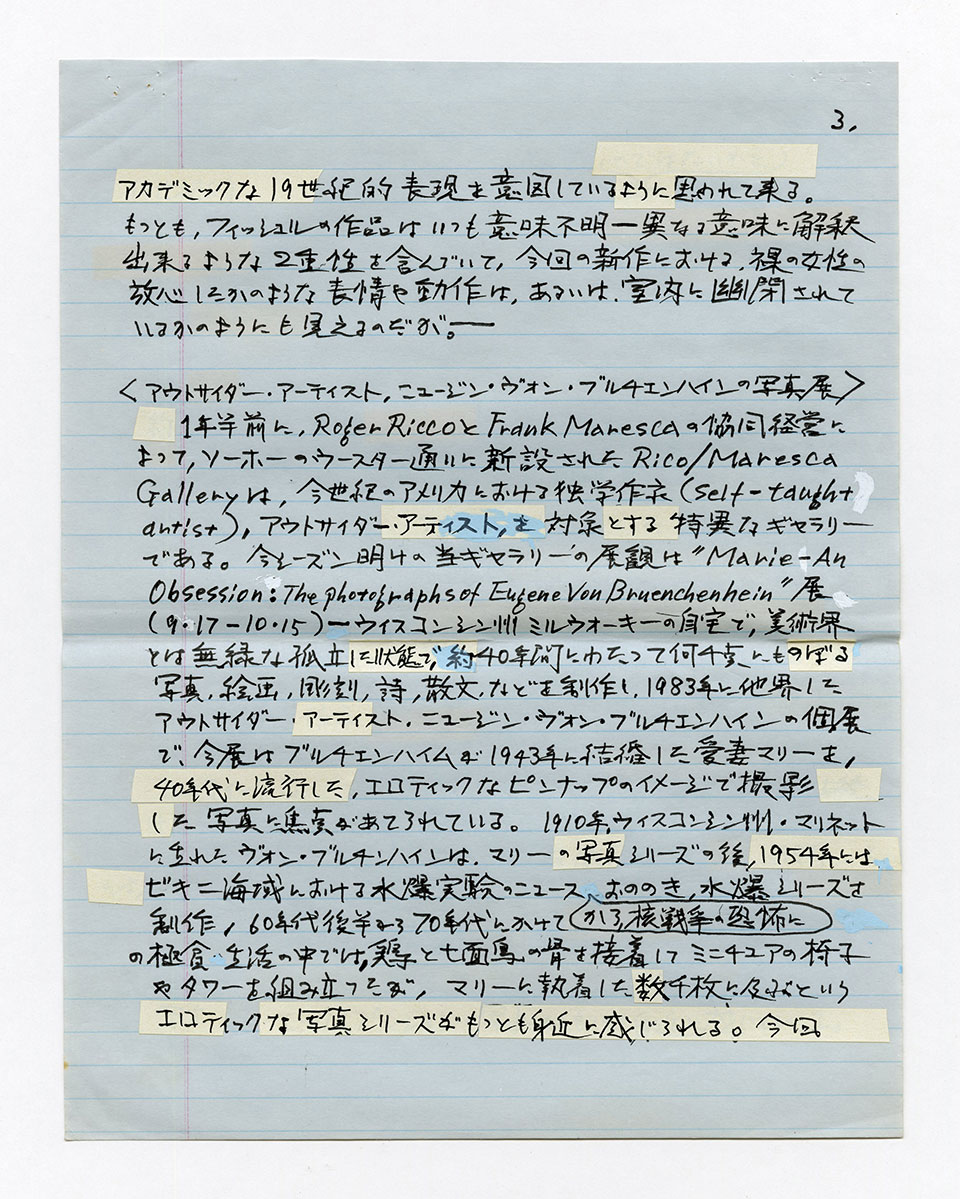 3.
アカデミックな19世紀的表現を意図しているように思われて来る。
もっとも,フィッシュルの作品はいつも意味不明一異なる意味に解釈
出来るような2重性を含んでいて,今回の新作における,裸の女性の
放心したかのような表情や動作は,あるいは,室内に幽閉されて
いるかのようにも見えるのだが。一
〈アウトサイダー・アーティスト,ニュージン・ヴォン・ブルチエンハインの写真展〉
1年半前に,Roger RiccoとFrank Marescaの協同経営に
よって,ソーホーのウースター通りに新設されたRico/Maresca
Galleryは,今世紀のアメリカにおける独学作家(self-taught
artist),アウトサイダー・アーティスト,を対象とする特異なギャラリー
である。今シーズン明けの当ギャラリーの展観は"Marie-An
Obsession: The photographs of Eugene Von Bruenchenhein"展
(9・17-10・15)一ウィスコンシン州ミルウォーキーの自宅で,美術界
とは無縁な孤立した状態で,約40年間にわたって何千点にものぼる
写真,絵画,彫刻,詩,散文,などを制作し,1983年に他界した
アウトサイダー・アーティスト・ニュージン・ヴォン・ブルチエンハインの個展
で,今展はブルチエンハイムが1943年に結婚した愛妻マリーを,
40年代に流行した,エロティックなピンナップのイメージで撮影
した写真に焦点があてられている。1910年,ウィスコンシン州・マリネット
に生れたヴォン・ブルチンハインは,マリーの写真シリーズの後,1954年には
ビキニ海域における水爆実験のニュースから核戦争の恐怖におののき,水爆シリーズを
制作,60年代後半から70年代にかけて
の極貧生活の中では,鶏と七面鳥の骨を接着してミニチュアの椅子
やタワーを組み立てたが,マリーに執着した数千枚に及ぶという
エロティックな写真シリーズがもっとも身近に感じられる。今回